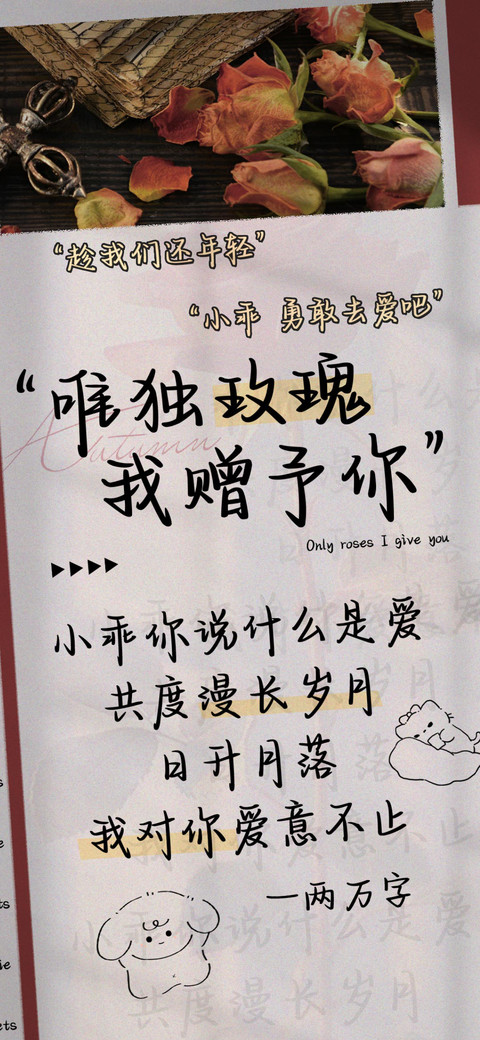 “趁我们还年轻”
“小乖 勇敢去爱吧”
“唯独玫瑰
Autumn
我赠予你”
Only roses I give you
小乖你说什么是爱
共度漫长岁月
日升月落
我对你爱意不止
一两万字